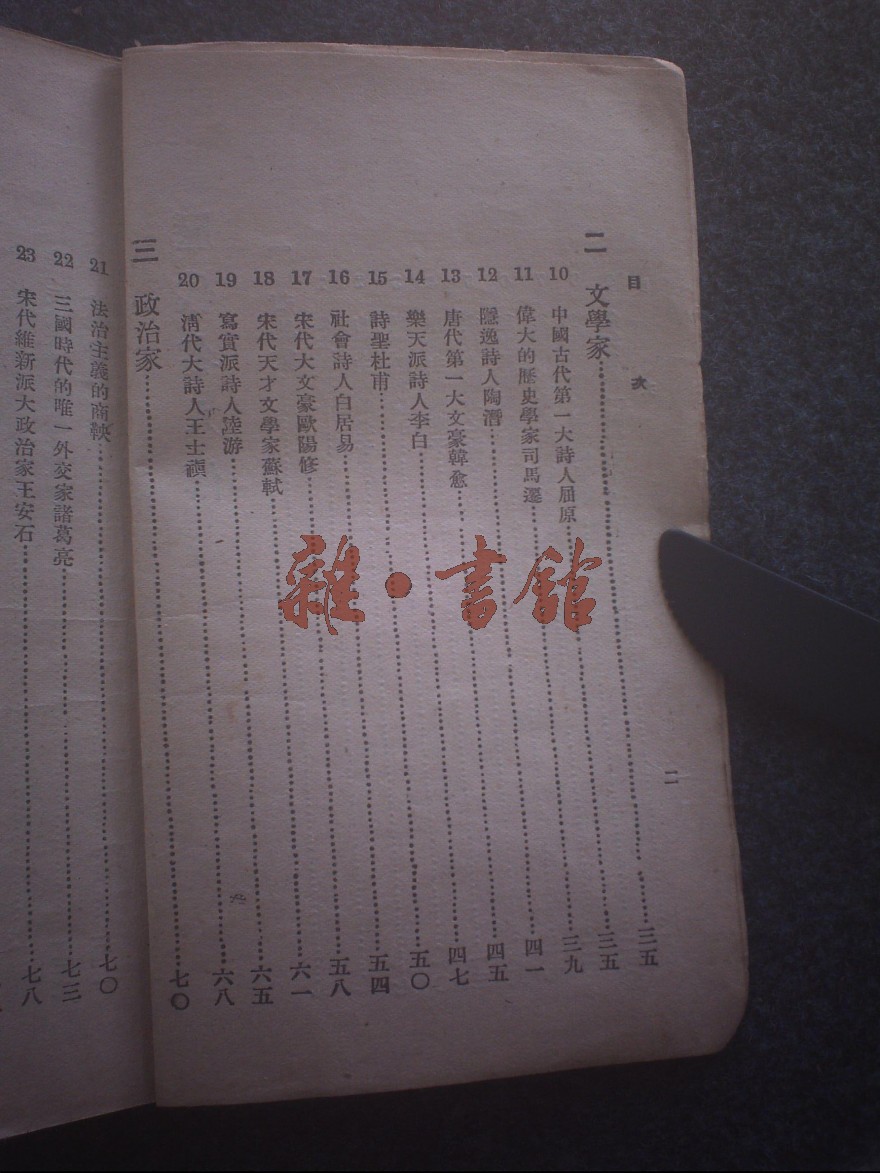 目次
二 文學家……三五
10 中國古代第一大詩人屈原……三五
11 偉大的歷史學家司馬遷……三九
12 隱逸詩人陶潛……四一
13 唐代第一大文豪韓愈……四五
14 樂天派詩人李白……四七
15 詩聖杜甫……五〇
16 社會詩人白居易……五四
17 宋代大文豪歐陽修……五八
18 宋代天才文學家蘇軾……六一
19 寫實派詩人陸游……六五
20 清代大詩人王士禎……六八
三 政治家……七〇
21 法治主義的商鞅……七〇
22 三國時代的唯一外交家諸葛亮……七三
23 宋代維新派大政治家王安石……七八
二
雜·書館